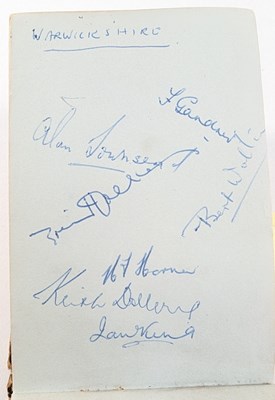 WARWICKSHIRE.
F Gardner
Alan Townsend
Bert Wol
H F Horner
Keith Dollery
Ian King